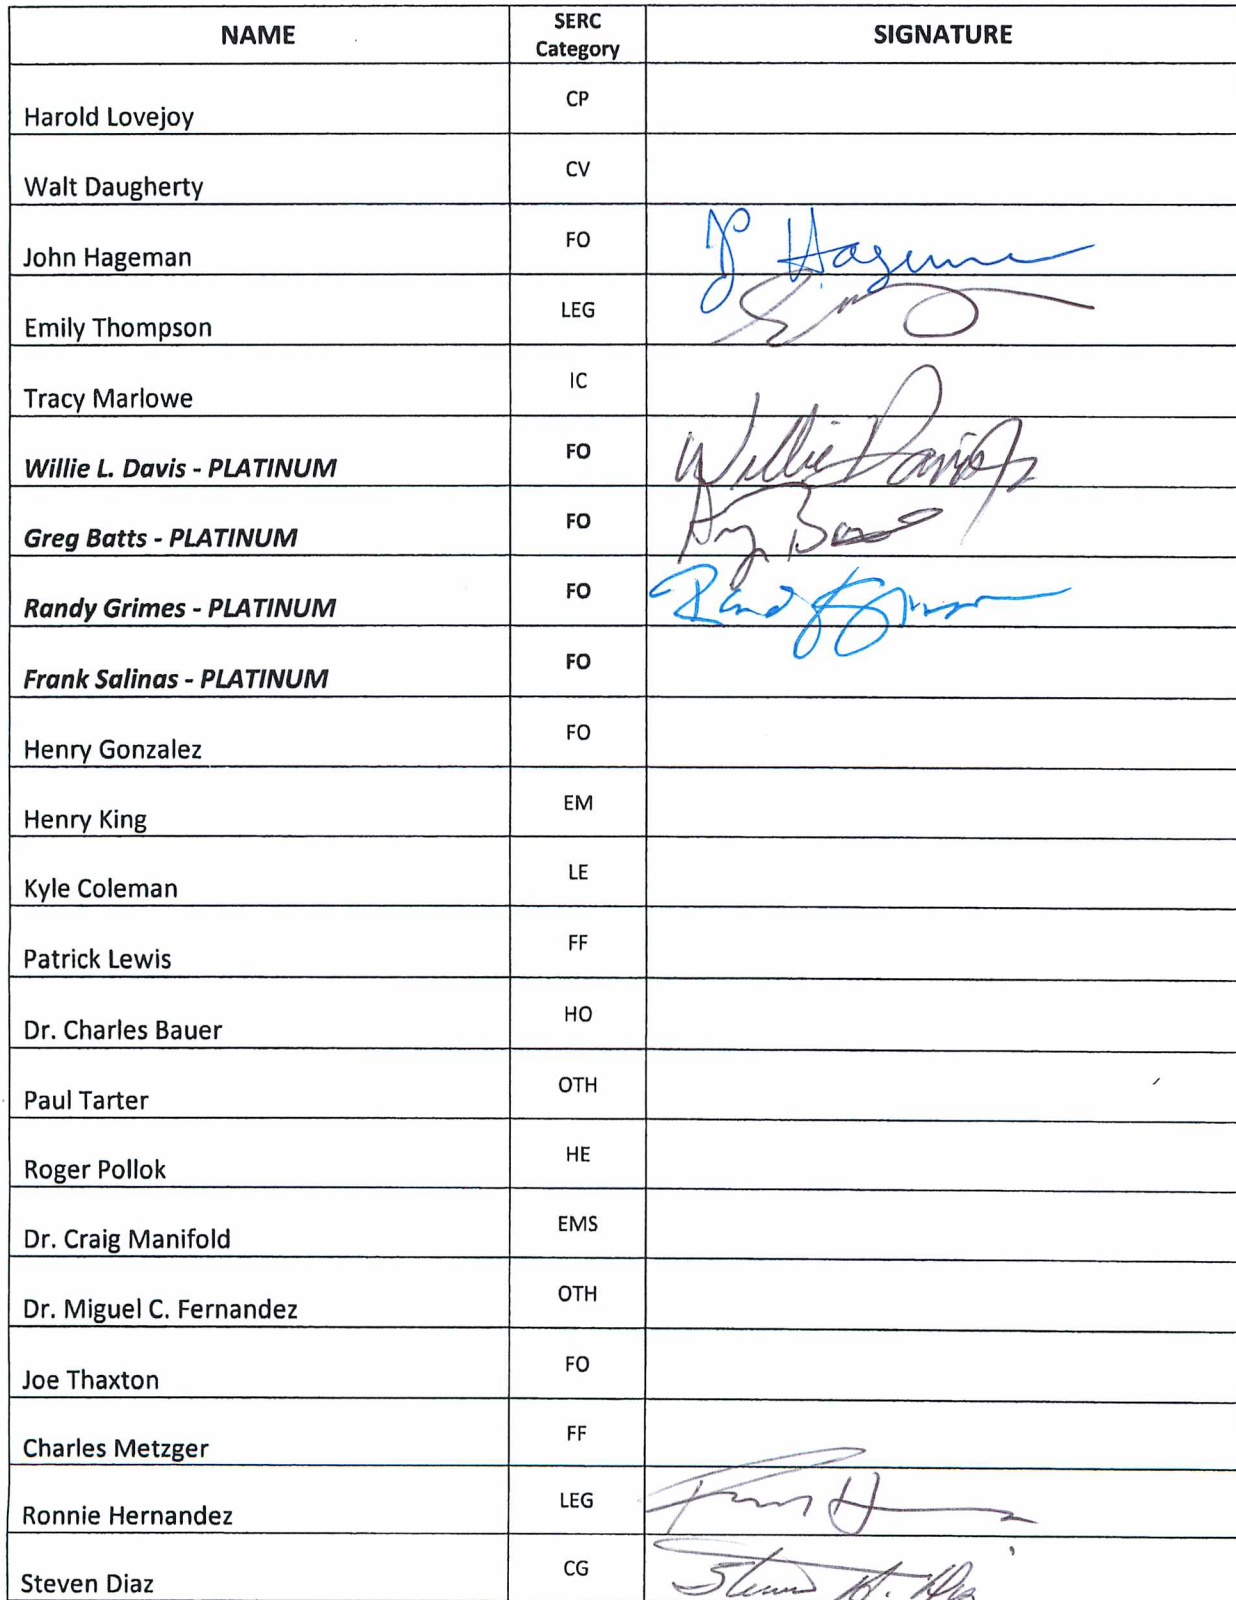 NAME SERC Category SIGNATURE
Harold Lovejoy CP
Walt Daugherty CV
John Hageman FO JP Hageman
Emily Thompson LEG
Tracy Marlowe IC
Willie L. Davis - PLATINUM FO Willie Davis Jr
Greg Batts - PLATINUM FO
Randy Grimes - PLATINUM FO
Frank Salinas - PLATINUM FO
Henry Gonzalez FO
Henry King EM
Kyle Coleman LE
Patrick Lewis FF
Dr. Charles Bauer HO
Paul Tarter OTH
Roger Pollok HE
Dr. Craig Manifold EMS
Dr. Miguel C. Fernandez OTH
Joe Thaxton FO
Charles Metzger FF
Ronnie Hernandez LEG
Steven Diaz CG